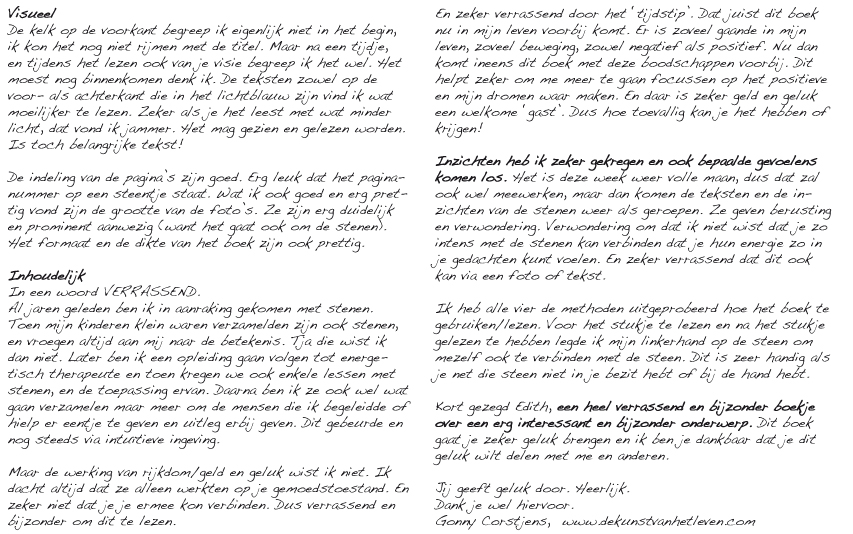 Visueel
De kelk op de voorkant begreep ik eigenlijk niet in het begin,
ik kon het nog niet rijmen met de titel. Maar na een tijdje,
en tijdens het lezen ook van je visie begreep ik het wel. Het
moest nog binnenkomen denk ik. De teksten zowel op de
voor- als achterkant die in het lichtblauw zijn vind ik wat
moeilijker te lezen. Zeker als je het leest met wat minder
licht, dat vond ik jammer. Het mag gezien en gelezen worden.
Is toch belangrijke tekst!

De indeling van de pagina`s zijn goed. Erg leuk dat het pagina-
nummer op een steentje staat. Wat ik ook goed en erg pret-
tig vond zijn de grootte van de foto`s. Ze zijn erg duidelijk
en prominent aanwezig (want het gaat ook om de stenen).
Het formaat en de dikte van het boek zijn ook prettig.

Inhoudelijk
In een woord VERRASSEND.
Al jaren geleden ben ik in aanraking gekomen met stenen.
Toen mijn kinderen klein waren verzamelden zijn ook stenen,
en vroegen altijd aan mij naar de betekenis. Tja die wist ik
dan niet. Later ben ik een opleiding gaan volgen tot energe-
tisch therapeute en toen kregen we ook enkele lessen met
stenen, en de toepassing ervan. Daarna ben ik ze ook wel wat
gaan verzamelen maar meer om de mensen die ik begeleidde of
hielp er eentje te geven en uitleg erbij geven. Dit gebeurde en
nog steeds via intuïtieve ingeving.

Maar de werking van rijkdom/geld en geluk wist ik niet. Ik
dacht altijd dat ze alleen werkten op je gemoedstoestand. En
zeker niet dat je je ermee kon verbinden. Dus verrassend en
bijzonder om dit te lezen.

En zeker verrassend door het ' tijdstip`. Dat juist dit boek
nu in mijn leven voorbij komt. Er is zoveel gaande in mijn
leven, zoveel beweging, zowel negatief als positief. Nu dan
komt ineens dit boek met deze boodschappen voorbij. Dit
helpt zeker om me meer te gaan focussen op het positieve
en mijn dromen waar maken. En daar is zeker geld en geluk
een welkome ' gast`. Dus hoe toevallig kan je het hebben of
krijgen!

Inzichten heb ik zeker gekregen en ook bepaalde gevoelens
komen los. Het is deze week weer volle maan, dus dat zal
ook wel meewerken, maar dan komen de teksten en de in-
zichten van de stenen weer als geroepen. Ze geven berusting
en verwondering. Verwondering om dat ik niet wist dat je zo
intens met de stenen kan verbinden dat je hun energie zo in
je gedachten kunt voelen. En zeker verrassend dat dit ook
kan via een foto of tekst.

Ik heb alle vier de methoden uitgeprobeerd hoe het boek te
gebruiken/lezen. Voor het stukje te lezen en na het stukje
gelezen te hebben legde ik mijn linkerhand op de steen om
mezelf ook te verbinden met de steen. Dit is zeer handig als
je net die steen niet in je bezit hebt of bij de hand hebt.

Kort gezegd Edith, een heel verrassend en bijzonder boekje
over een erg interessant en bijzonder onderwerp. Dit boek
gaat je zeker geluk brengen en ik ben je dankbaar dat je dit
geluk wilt delen met me en anderen.

Jij geeft geluk door. Heerlijk.
Dank je wel hiervoor.
Gonny Corstjens, www.dekunstvanhetleven.com